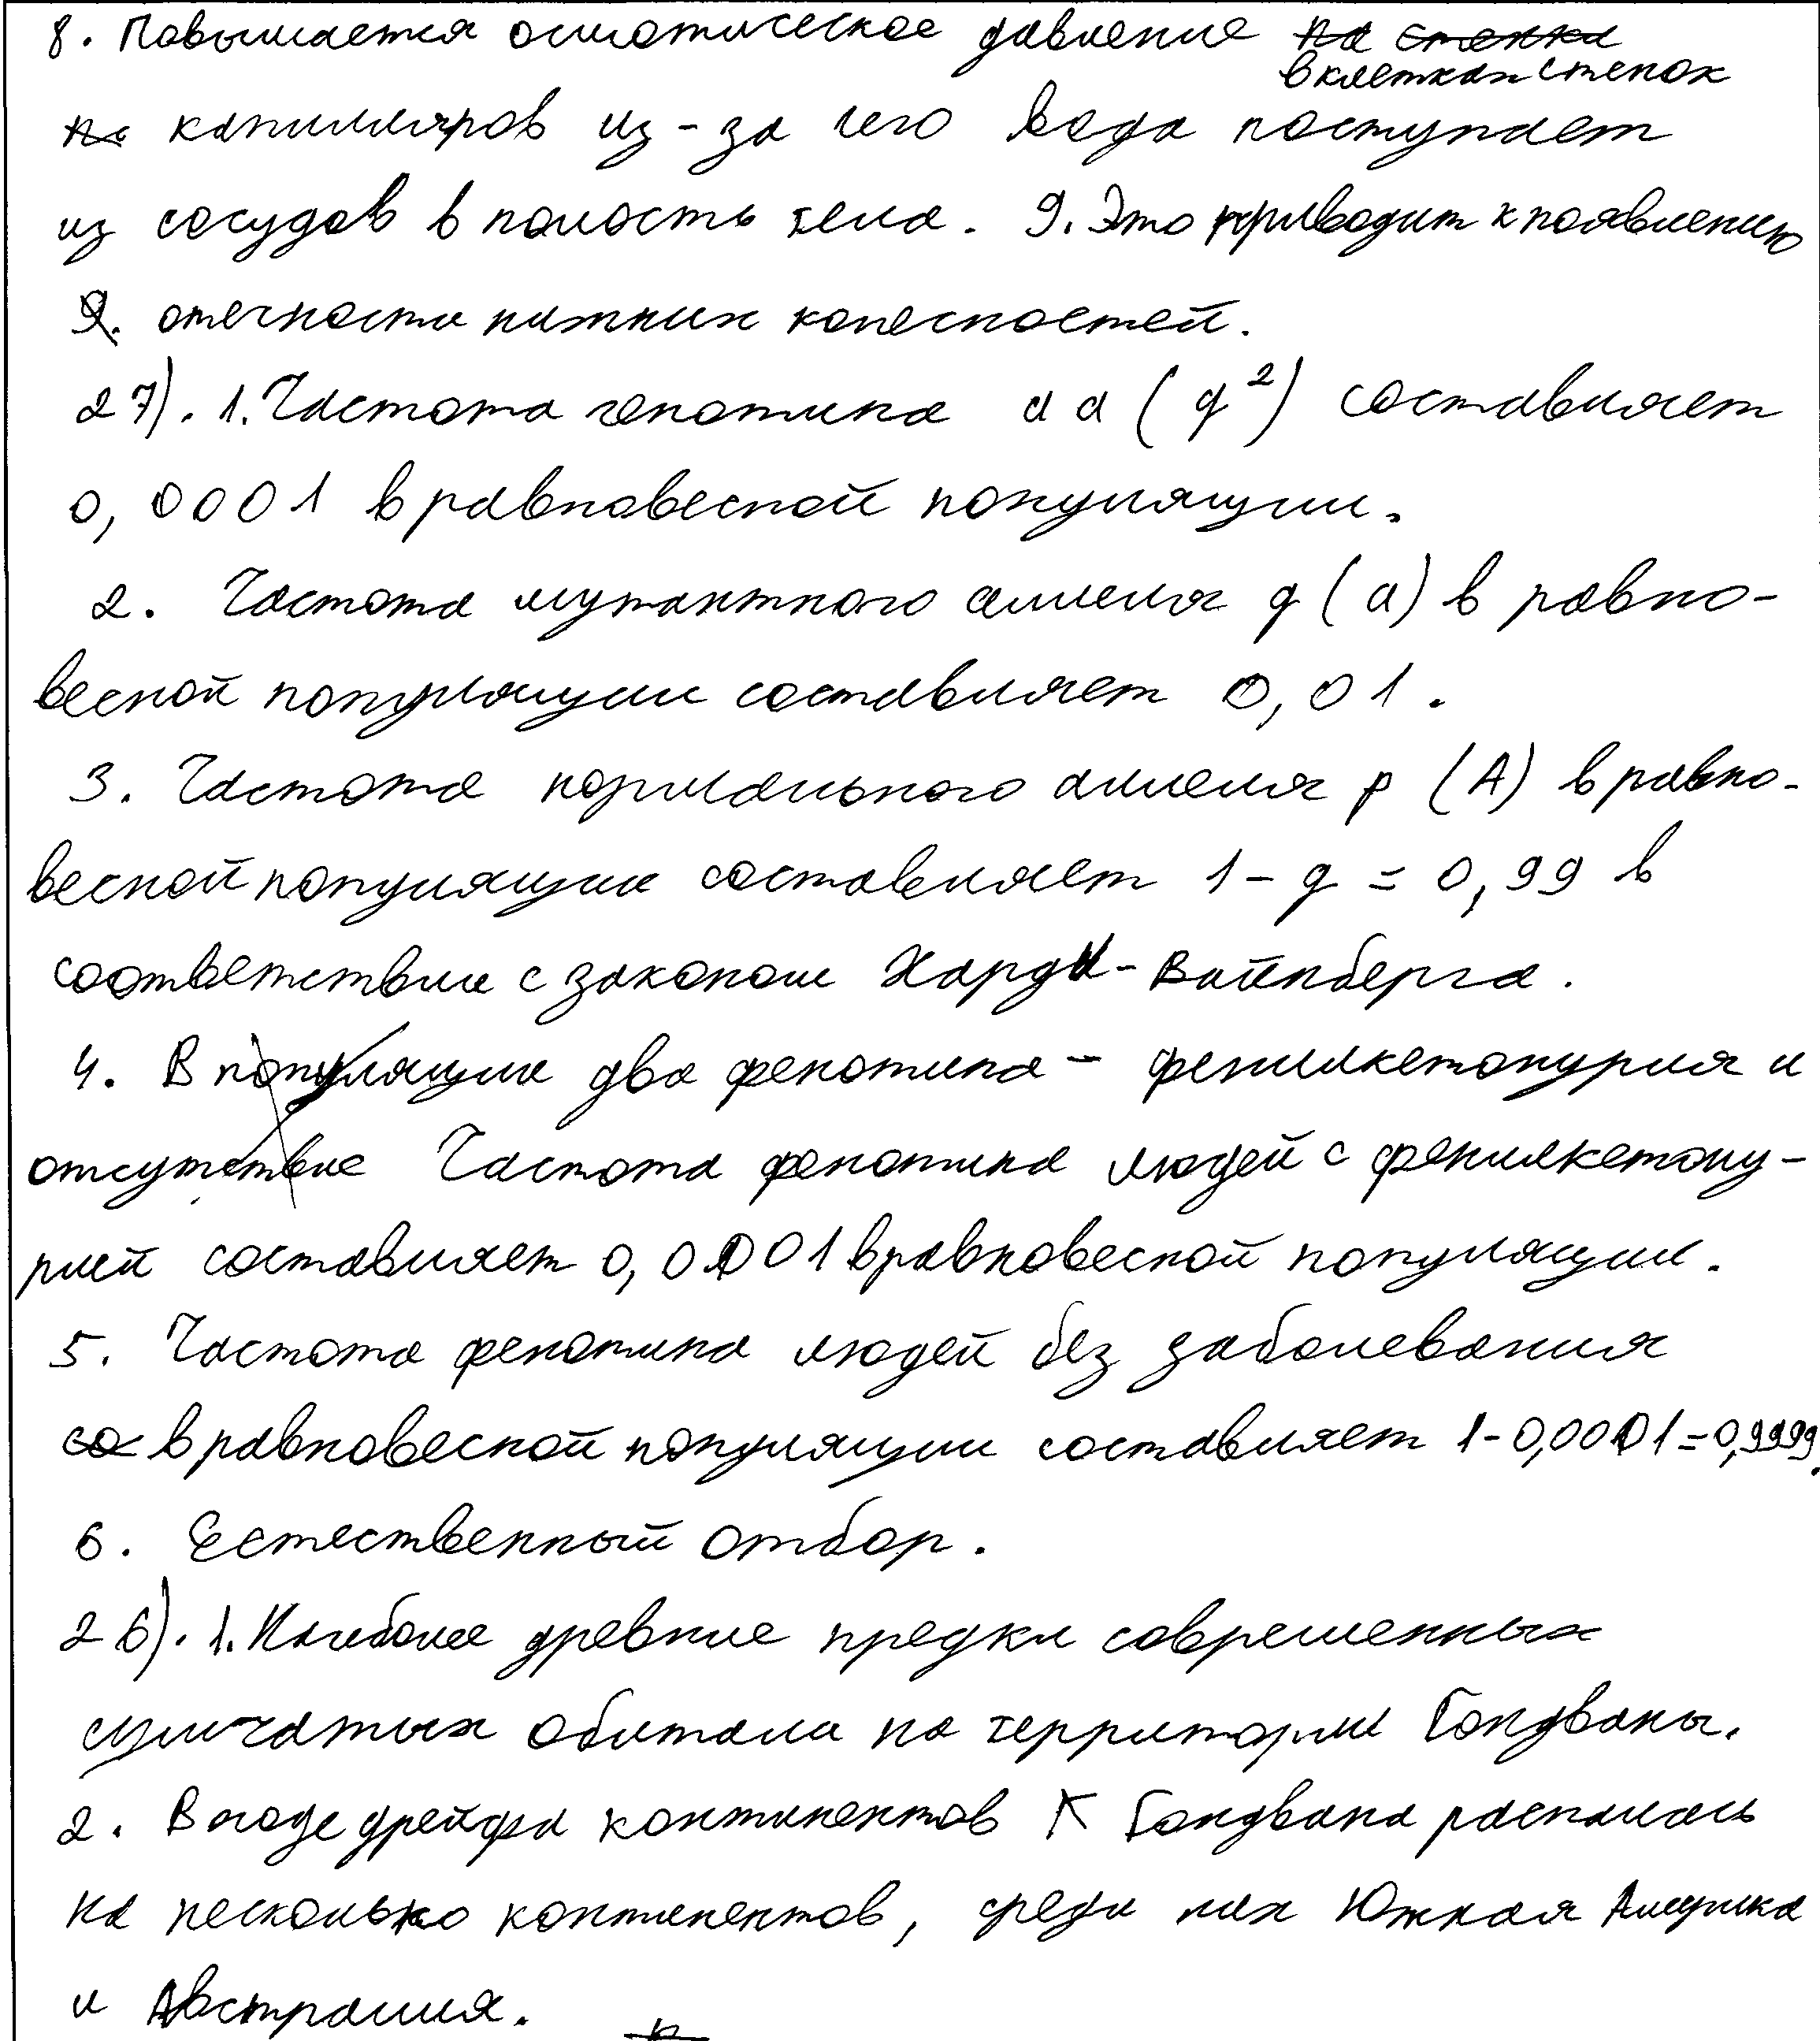 8. Повышается осмотическое давление на стенки
в клетках стенок
на капилляров из-за чего вода поступает
из сосудов в полость тела. 9. Это приводит к появлению
9. отечности нижних конечностей.
27). 1. Частота генотипа aa (q²) составляет
0,0001 в равновесной популяции.
2. Частота мутантного аллеля q (a) в равно-
весной популяции составляет 0,01.
3. Частота нормального аллеля p (A) в равно-
весной популяции составляет 1 - q = 0,99 в
соответствии с законом Харди-Вайнберга.
4. В популяции два фенотипа - фенилкетонурия и
отсутствие Частота фенотипа людей с фенилкетону-
рией составляет 0,0001 в равновесной популяции.
5. Частота фенотипа людей без заболевания
со в равновесной популяции составляет 1-0,0001=0,9999.
6. Естественный отбор.
26). 1. Наиболее древние предки современных
сумчатых обитали на территории Гондваны.
2. В ходе дрейфа континентов Гондвана распалась
на несколько континентов, среди них Южная Америка
и Австралия.